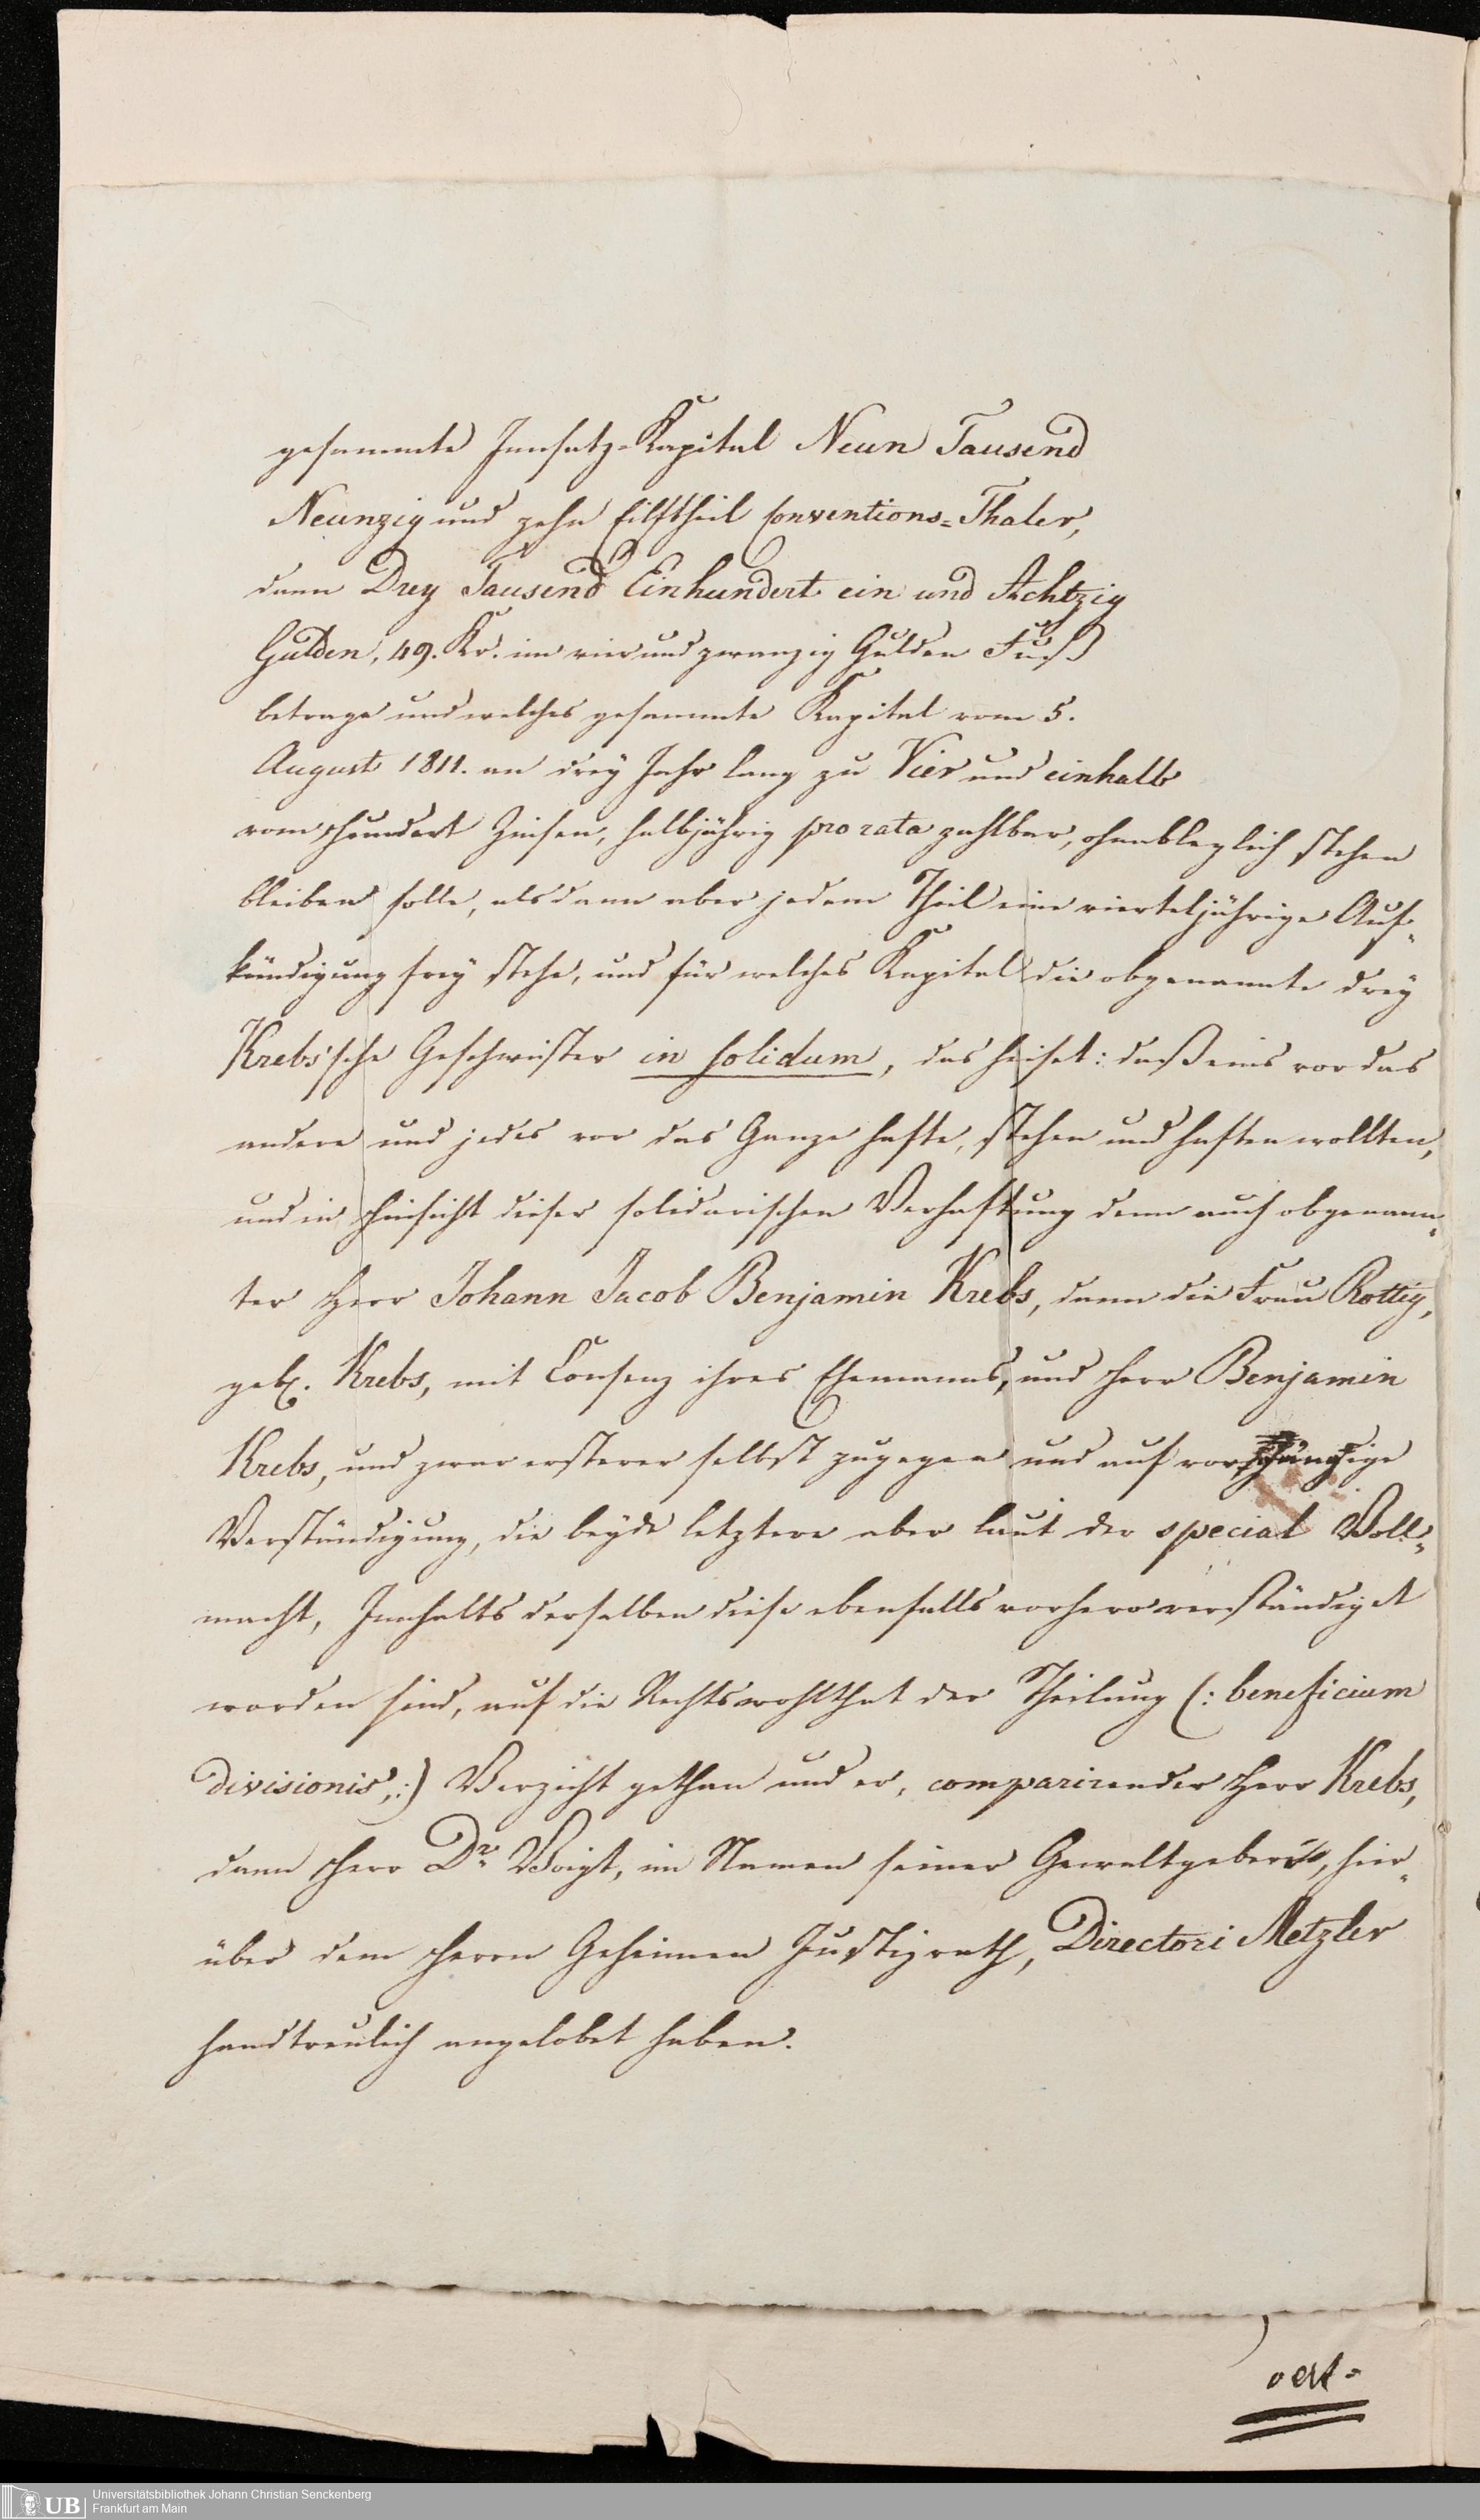 gesammte Innsatz-Kapital Neun Tausend
Neunzig und zehn Eilftheil Conventions=Thaler,
dann Drey Tausend Einhundert ein und Achtzig
Gulden, 49. Kr. im vier und zwanzig Gulden Fuß
betrage und welches gesammte Kapital vom 5.
August 1811. an drey Jahr lang zu Vier und einhalb
vom Hundert Zinsen, halbjährig pro rata zahlbar, ohnableglich stehen
bleiben solle, alsdann aber jedem Theil eine vierteljährige Auf-
kündigung frey stehe, und für welches Kapital die obgenannte drey
Krebs'sche Geschwister in solidum, das heiset: daß eins vor das
andere und jedes vor das Ganze hafte, stehen und haften wollten,
und in Hinsicht dieser solidarischen Verhaftung denn auch obgenann-
ter Herr Johann Jacob Benjamin Krebs, dann die Frau Rottig,
geb. Krebs, mit Consenz ihres Ehemanns, und Herr Benjamin
Krebs, und zwar ersterer selbst zugegen und auf vorgängige
Verständigung, die beyde letztere aber laut der special Voll-
macht, Innhalts derselben diese ebenfalls vorhero verständiget
worden sind, auf die Rechtswohlthat der Theilung (: beneficium
divisionis, :) Verzicht gethan und er, comparirender Herr Krebs,
dann Herr Dr. Voigt, im Namen seiner Gewaltgeber, hier-
über dem Herrn Geheimen Justizrath, Directori Metzler
handtreulich angelobet haben.
vert=
UB Universitätsbibliothek Johann Christian Senckenberg
Frankfurt am Main